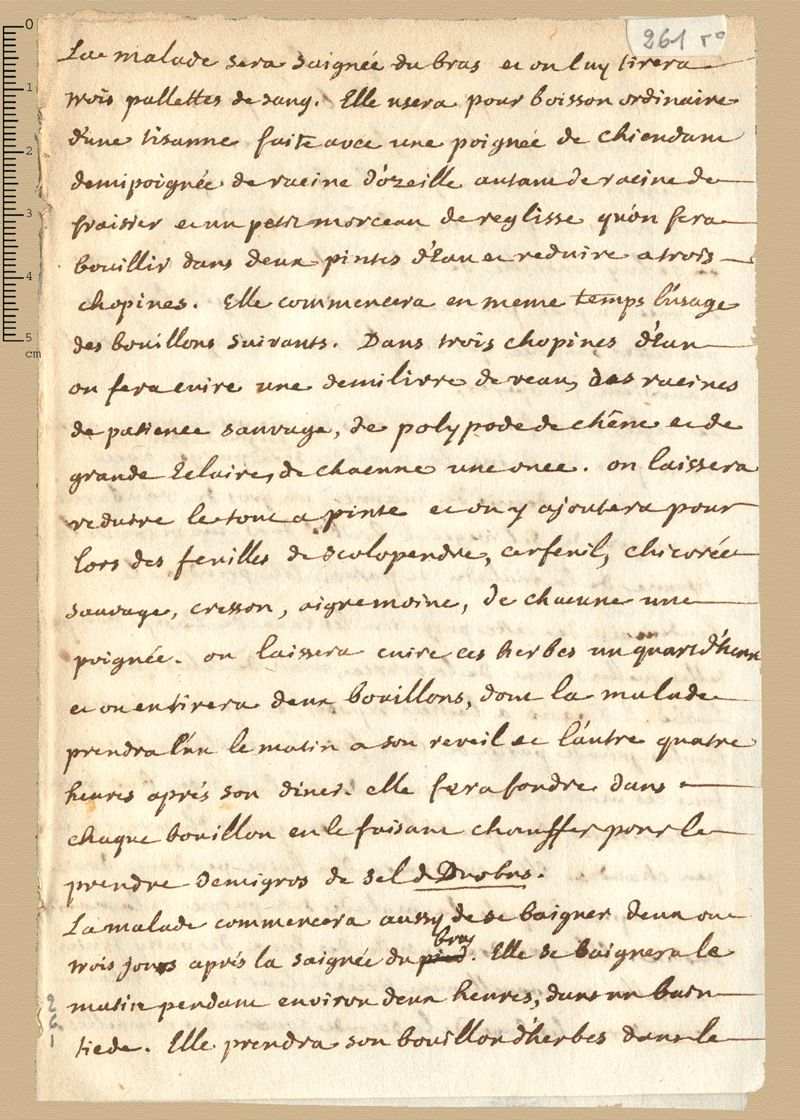 261 r°
La malade sera saignée du bras et on luy tirera
trois pallettes de sang. Elle usera pour boisson ordinaire
d'une tisanne faite avec une poignée de chiendant
demi poignée de racine d'ozeille autant de racine de
fraisier et un petit morceau de reglisse qu'on fera
bouillir dans deux pintes d'Eau et reduire a trois
chopines. Elle commencera en meme temps l'usage
des bouillons suivants. Dans trois chopines d'Eau
on fera cuire une demi livre de veau, des racines
de patience sauvage, de polypode de chêne et de
grande Eclaire, de chacune une once. on laissera
reduire le tout a pinte et on y ajoutera pour
lors des feuilles de scolopendre, cerfeuil, chicorée
sauvage, cresson, aigremoine, de chacune une
poignée. on laissera cuire ces herbes un quart d'heure
et on en tirera deux bouillons, dont la malade
prendra l'un le matin a son reveil et l'autre quatre
heures aprés son diner. elle fera fondre dans
chaque bouillon en le faisant chauffer pour le
prendre demi gros de sel de Duobus.
La malade commencera aussy de se baigner deux ou
trois jours aprés la saignée du pied bras. Elle se baignera le
matin pendant environ deux heures, dans un bain
tiede. Elle prendra son bouillon d'herbes dans le
261
0
1
2
3
4
5
cm